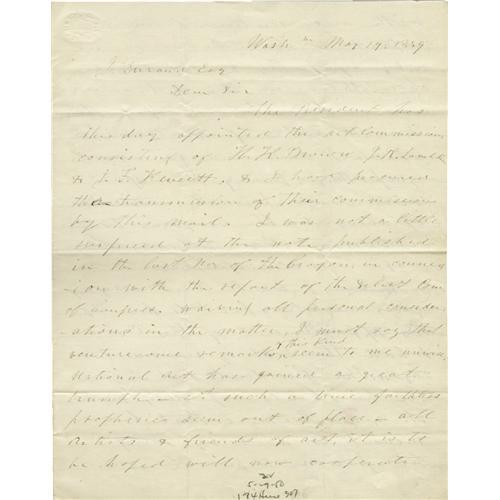 Washn May 19. 1859
J. Durand Esq
Dear Sir
The President has
this day appointed the art Commission
consisting of H. K. Brown, J. R. Lambdin
& J. F. Kensett, & I have procured
the transmission of their commissions
by this mail. I was not a little
surprised at the note published
in the last No of The Crayon, in connex
-ion with the report of the Select Com.
of Congress. Waiving all personal consider
-ations in the matter, I must say that
venturesome remarks, of this kind seem to me unwise.
National art has gained a great
triumph - & at such a time
prophecies seem out of place - all
Artists & friends of art, it is to
be hoped will now cooperate